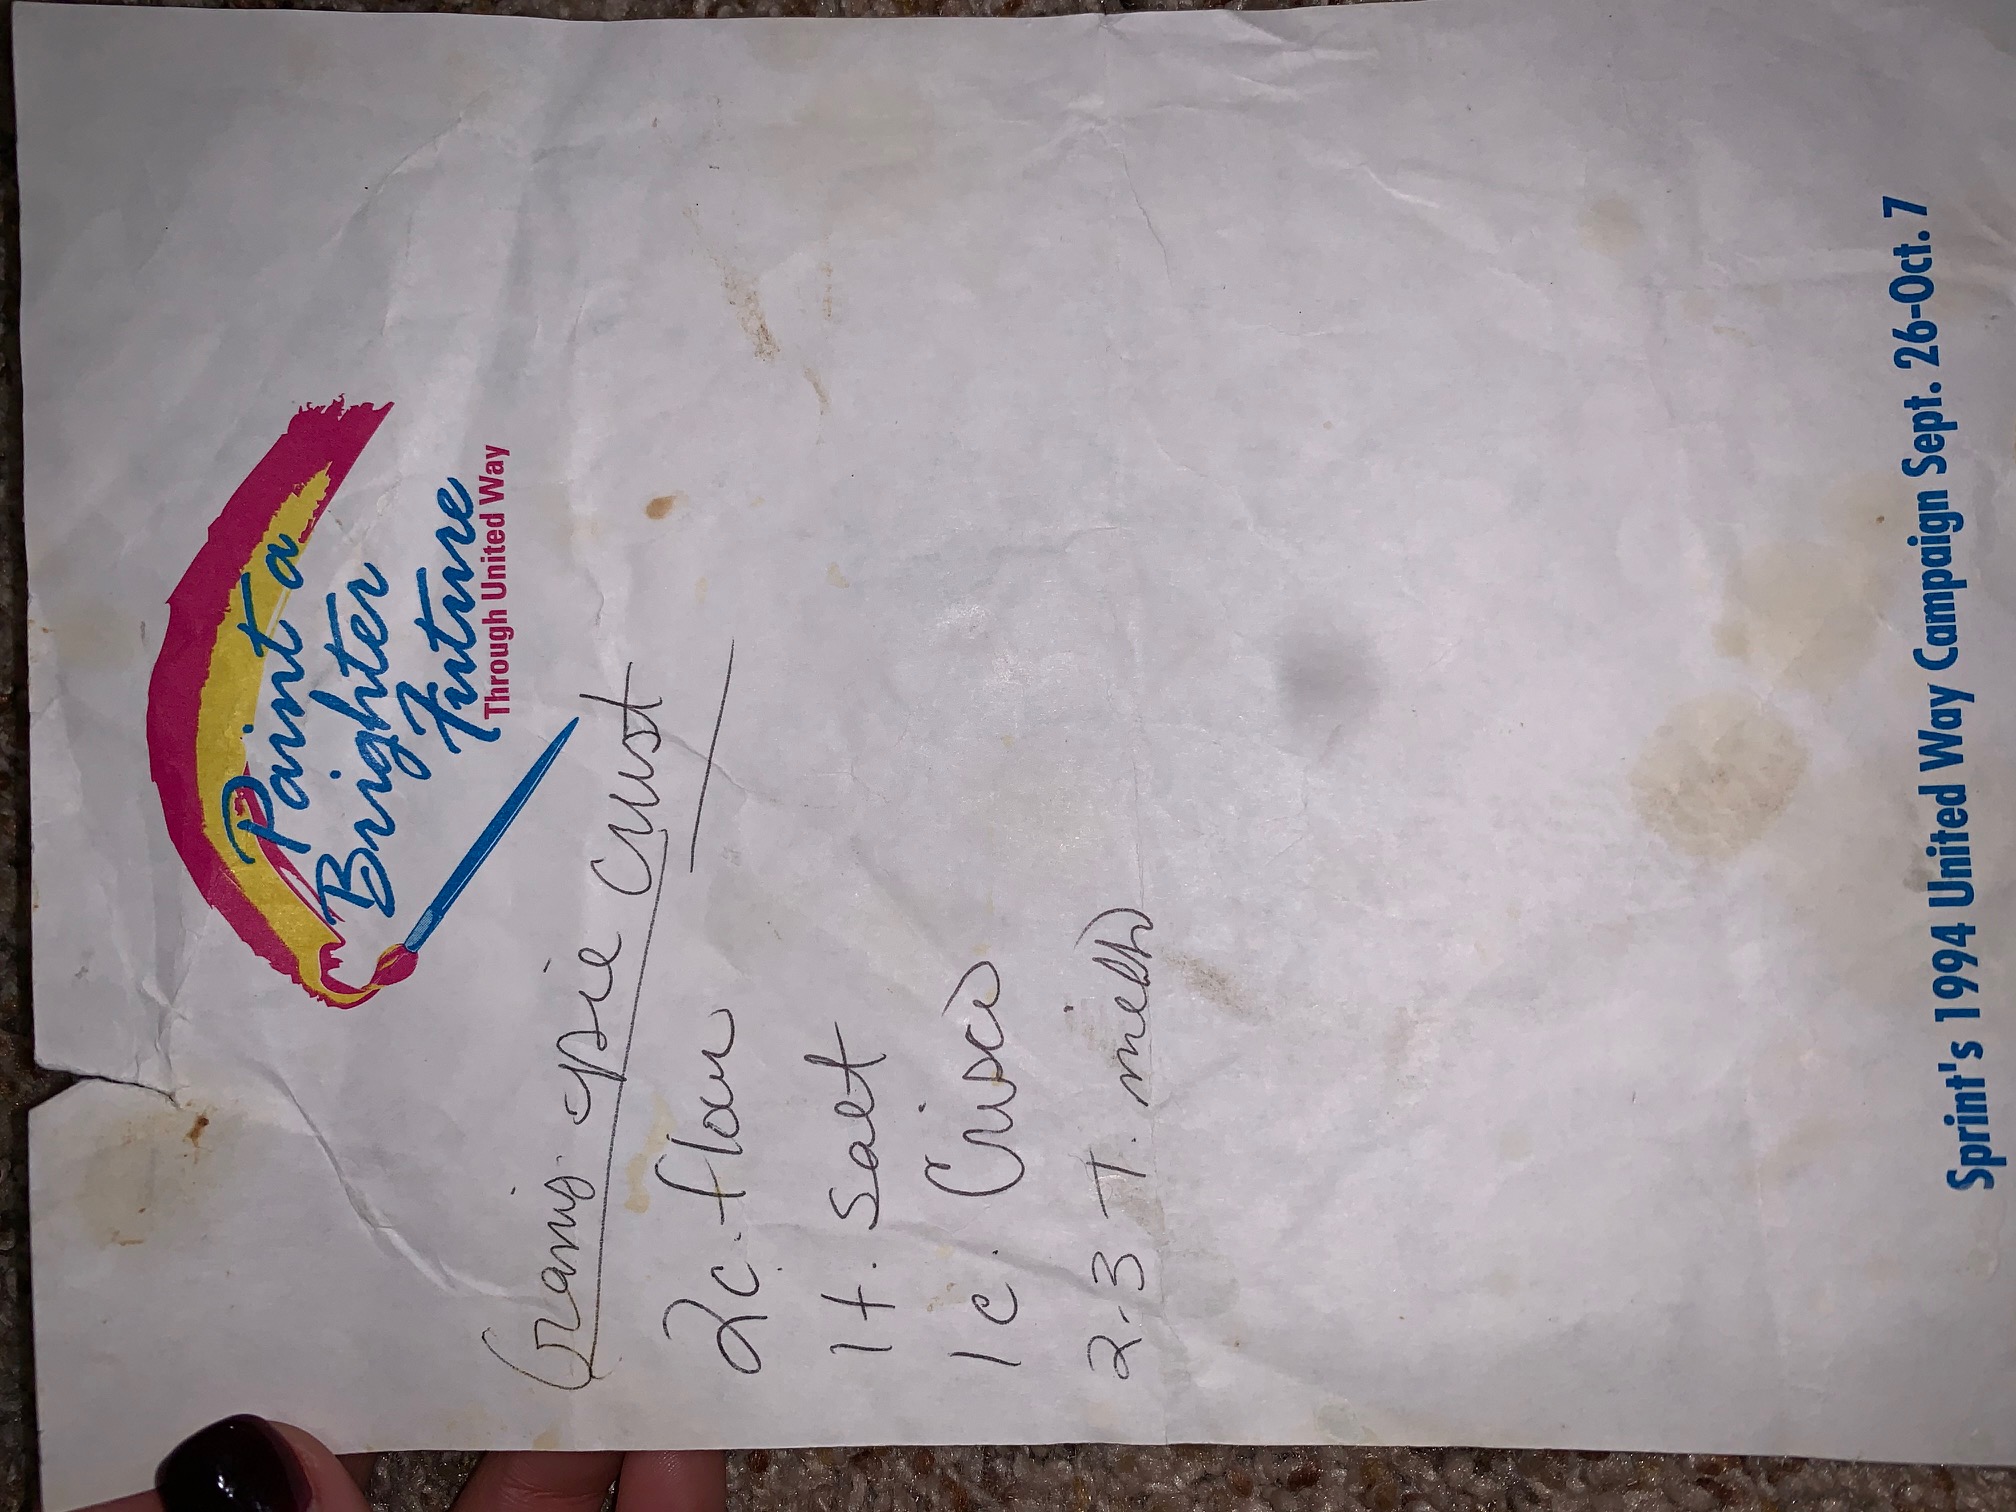 Paint a
Brighter
Future
Through United Way
Gram's pie crust
2c. flour
1 t. salt
1 c. Crisco
2-3 T.
Sprint's 1994 United Way Campaign Sept. 26-Oct. 7